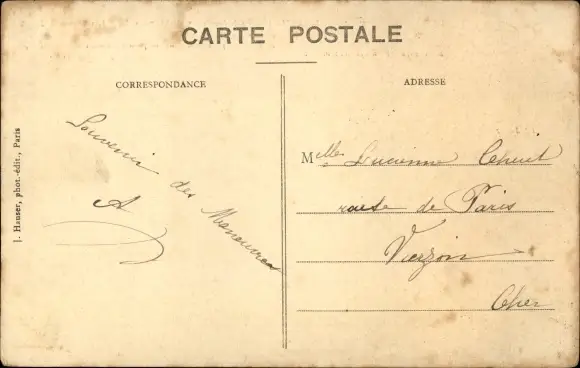 CARTE POSTALE
CORRESPONDANCE
ADRESSE
Souvenir des Manœuvres
A
Melle Lucienne
route de Paris
Vierzon
Cher
J. Hauser, phot.-édit., Paris